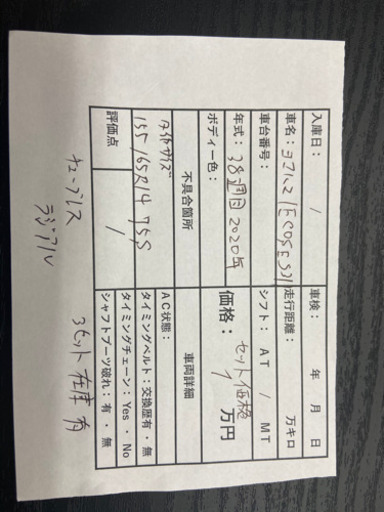 入庫日： / 車検： 年 月 日
車名：ヨコハマ/ECOS ES31 走行距離： 万キロ
車台番号： シフト： AT / MT
年式：38週目2020年 価格：セット価格 1 万円
ボディー色：
不具合箇所 車両詳細
タイヤサイズ AC状態：
155/65R14 75S タイミングベルト：交換歴有・無
評価点 / タイミングチェーン：Yes・No
シャフトブーツ破れ：有・無
チューブレス 3セット在庫有
ラジアル